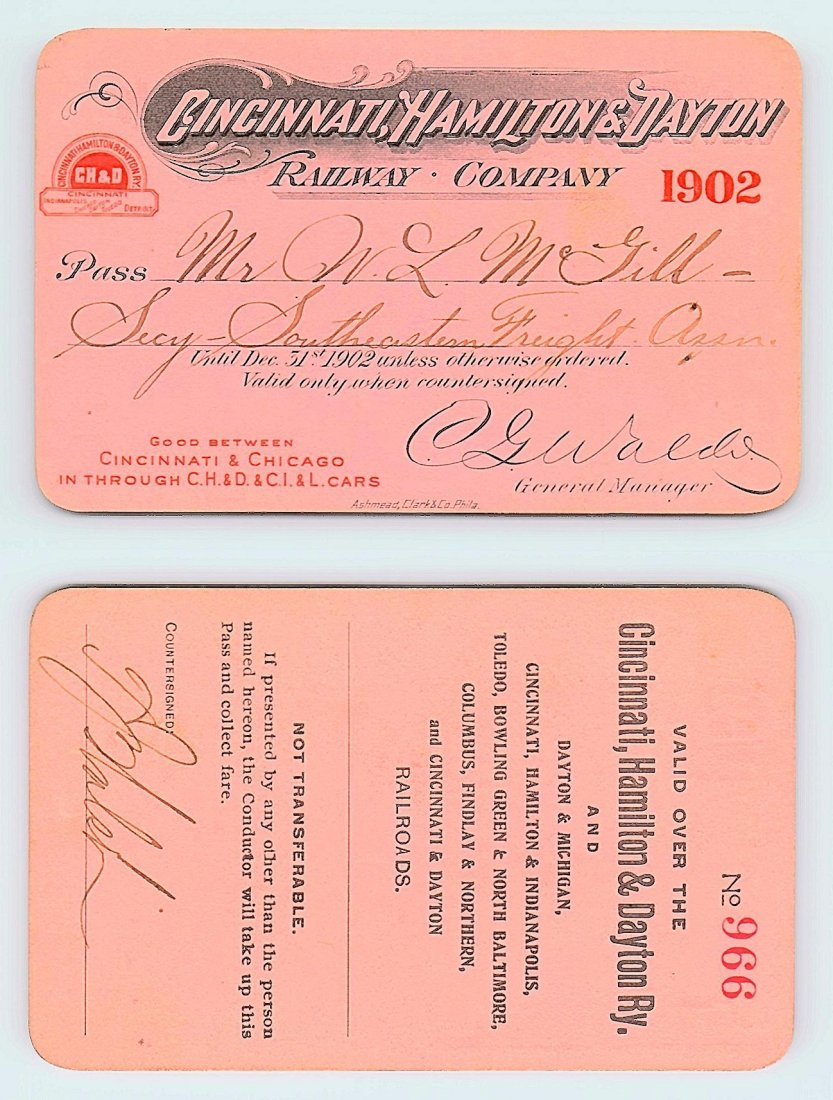 CINCINNATI, HAMILTON & DAYTON
RAILWAY · COMPANY
1902
CINCINNATI HAMILTON & DAYTON RY.
CH&D
CINCINNATI
INDIANAPOLIS
DETROIT
Pass Mr W. L. McGill -
Secy - Southeastern Freight Assn.
Until Dec. 31st 1902 unless otherwise ordered.
Valid only when countersigned.
GOOD BETWEEN
CINCINNATI & CHICAGO
IN THROUGH C.H.& D. & C.I. & L. CARS
C G Waldo
General Manager
Ashmead, Clark & Co. Phila.
No 966
VALID OVER THE
Cincinnati, Hamilton & Dayton Ry.
AND
DAYTON & MICHIGAN,
CINCINNATI, HAMILTON & INDIANAPOLIS,
TOLEDO, BOWLING GREEN & NORTH BALTIMORE,
COLUMBUS, FINDLAY & NORTHERN,
and CINCINNATI & DAYTON
RAILROADS.
NOT TRANSFERABLE.
If presented by any other than the person
named hereon, the Conductor will take up this
Pass and collect fare.
COUNTERSIGNED: